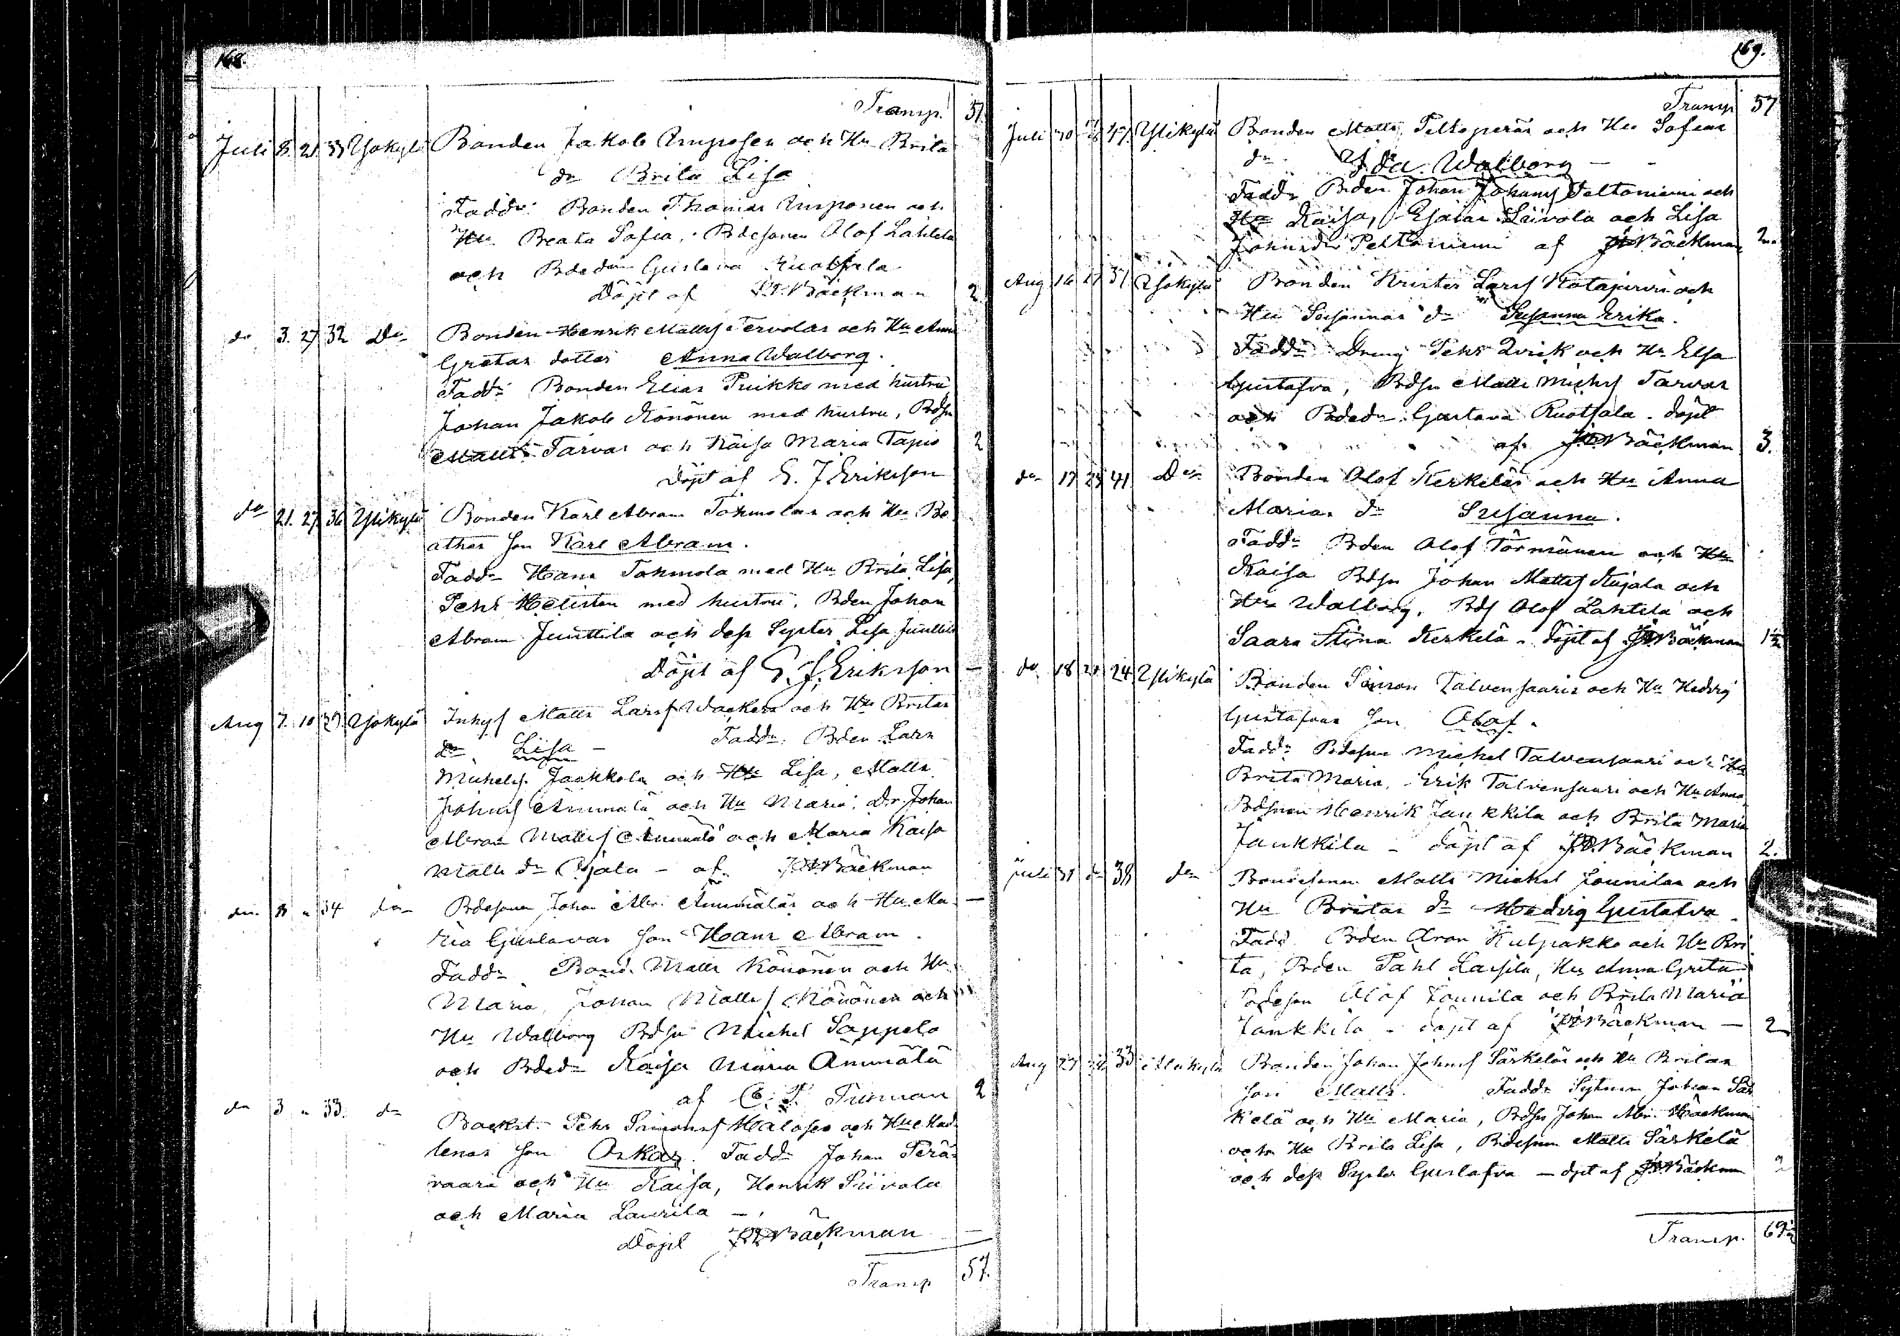 168.
Transp. 51.
Juli 8. 21. 33 Yokylä Bonden Jakob Rupposen och Hu Brita
dr Brita Lisa
Faddr Bonden Thomas Rupponen och
Hu Beata Sofia, Bdesonen Olof Lahtela
och Bdedn Gustava Ruotsala
Döpt af Bäckman 2.
do 3. 27 32 Do Bonden Henrik Matts Tervolas och Hu Anna
Gretas dotter Anna Walborg.
Faddr Bonden Elias Puikko med hustru
Johan Jakob Könönen med hustru, Bdsn
Matts Tarvas och Kaisa Maria Tapio 2
Döpt af E. J. Eriksson
do 21. 27. 36 Ylikylä Bonden Karl Abram Tohmolas och Hu Be
atas son Karl Abram.
Faddr Hans Tohmola med Hu Brita Lisa,
Pehr Helisten med hustru, Bden Johan
Abram Junttila och dess Syster Lisa Junttila
Döpt af E. J. Eriksson —
Aug 7. 10 Yokylä Inhys Matts Larss Wackers och Hu Britas
dr Lisa — Faddr Bden Lars
Michels. Jaakkola och Hu Lisa, Matts
Johans Ämmälä och Hu Maria, Dr Johan
Abram Matts Ämmälä och Maria Kaisa
Matts dr Ojala — af Bäckman
do 8 " 34 do Bdesonen Johan Abr. Ämmäläs och Hu Ma— —
ria Gustavas son Hans Abram.
Faddr Bond. Matts Könönen och Hu
Maria, Johan Matts Könönen och
Hu Walborg Bdsn Michel Sappela
och Bdedr Kaisa Maria Ämmälä
af Furman 2
do 3 " 33. do Backst. Pehr Simons Halosen och Hu Mad
lenas son Oskar. Faddr Johan Terä
vaara och Hu Kaisa, Henrik Siivola
och Maria Laurila —
Döpt Bäckman —
Transp. 57.
169.
Transp. 57
Juli 30 47. Ylikylä Bonden Matts Peltoperäs och Hu Sofias
dr Ida Walborg —
Faddr Bden Johan Johans Peltoniemi och
Hu Kaisa, Esaias Siivola och Lisa
Johansdr Peltoniemi af Bäckman 2
Aug 16 21 37 Yokylä Bonden Krister Larss Kotajärvi och
Hu Susannas dr Susanna Erika.
Faddr Dreng Pehr Qvick och Hu Elsa
Gustafva, Bdsn Matts Michs Tarvas
och Bdedr Gustava Ruotsala. döpt
af Bäckman 3.
do 17 23 41 Do Bonden Olof Kerkeläs och Hu Anna
Marias dr Susanna.
Faddr Bden Olof Törmänen och Hu
Kaisa Bdsn Johan Matts Kujala och
Hu Walborg, Bds Olof Lahtela och
Saara Stina Kerkelä — döpt af Bäckman 1½
do 18 21 24 Ylikylä Bonden Simon Talvensaaris och Hu Hedvig
Gustafvas son Olof.
Faddr Bdesone Michel Talvensaari och Hu
Brita Maria, Erik Talvensaari och Hu Anna
Bdsonen Henrik Jankkila och Brita Maria
Jankkila — döpt af Bäckman 2.
Juli 31 do 38 do Bondesonen Matts Michel Jounilas och
Hu Britas dr Hedvig Gustafva.
Fadd. Bden Aron Kulpakko och Hu Bri
ta, Bden Pahl Laisila, Hu Anna Greta
Bdeson Olof Jounila och Brita Maria
Jankkila — döpt af Bäckman — 2
Aug 27 33 Alakylä Bonden Johan Johans Särkeläs och Hu Britas
son Matts. Faddr Sytmn Johan Sär
kelä och Hu Maria, Bdsn Johan Abr. Häckman
och Hu Brita Lisa, Bdesonen Matts Särkelä
och dess Syster Gustafva — dpt af Bäckman 2
Transp. 69½